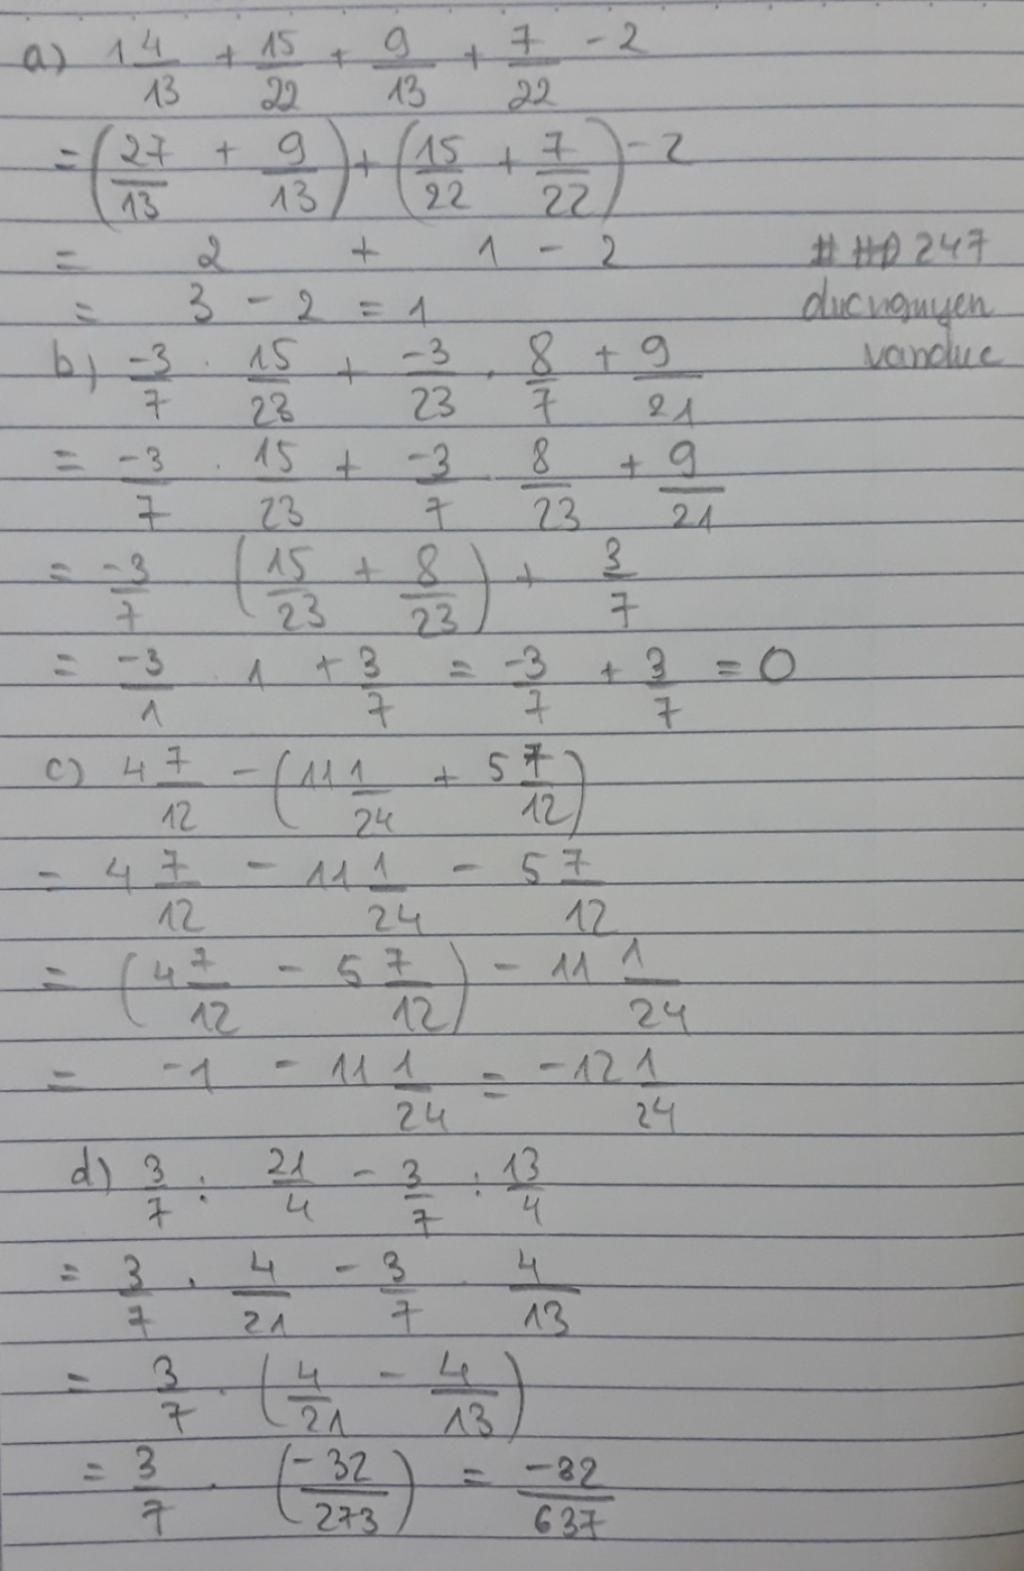 a) 1 4/13 + 15/22 + 9/13 + 7/22 - 2
= (27/13 + 9/13) + (15/22 + 7/22) - 2
= 2 + 1 - 2
# HĐ 247
= 3 - 2 = 1
ducnguyen
vanduc
b) -3/7 . 15/23 + -3/23 . 8/7 + 9/21
= -3/7 . 15/23 + -3/7 . 8/23 + 9/21
= -3/7 (15/23 + 8/23) + 3/7
= -3/1 . 1 + 3/7 = -3/7 + 3/7 = 0
c) 4 7/12 - (11 1/24 + 5 7/12)
= 4 7/12 - 11 1/24 - 5 7/12
= (4 7/12 - 5 7/12) - 11 1/24
= -1 - 11 1/24 = -12 1/24
d) 3/7 : 21/4 - 3/7 : 13/4
= 3/7 . 4/21 - 3/7 . 4/13
= 3/7 . (4/21 - 4/13)
= 3/7 . (-32/273) = -32/637